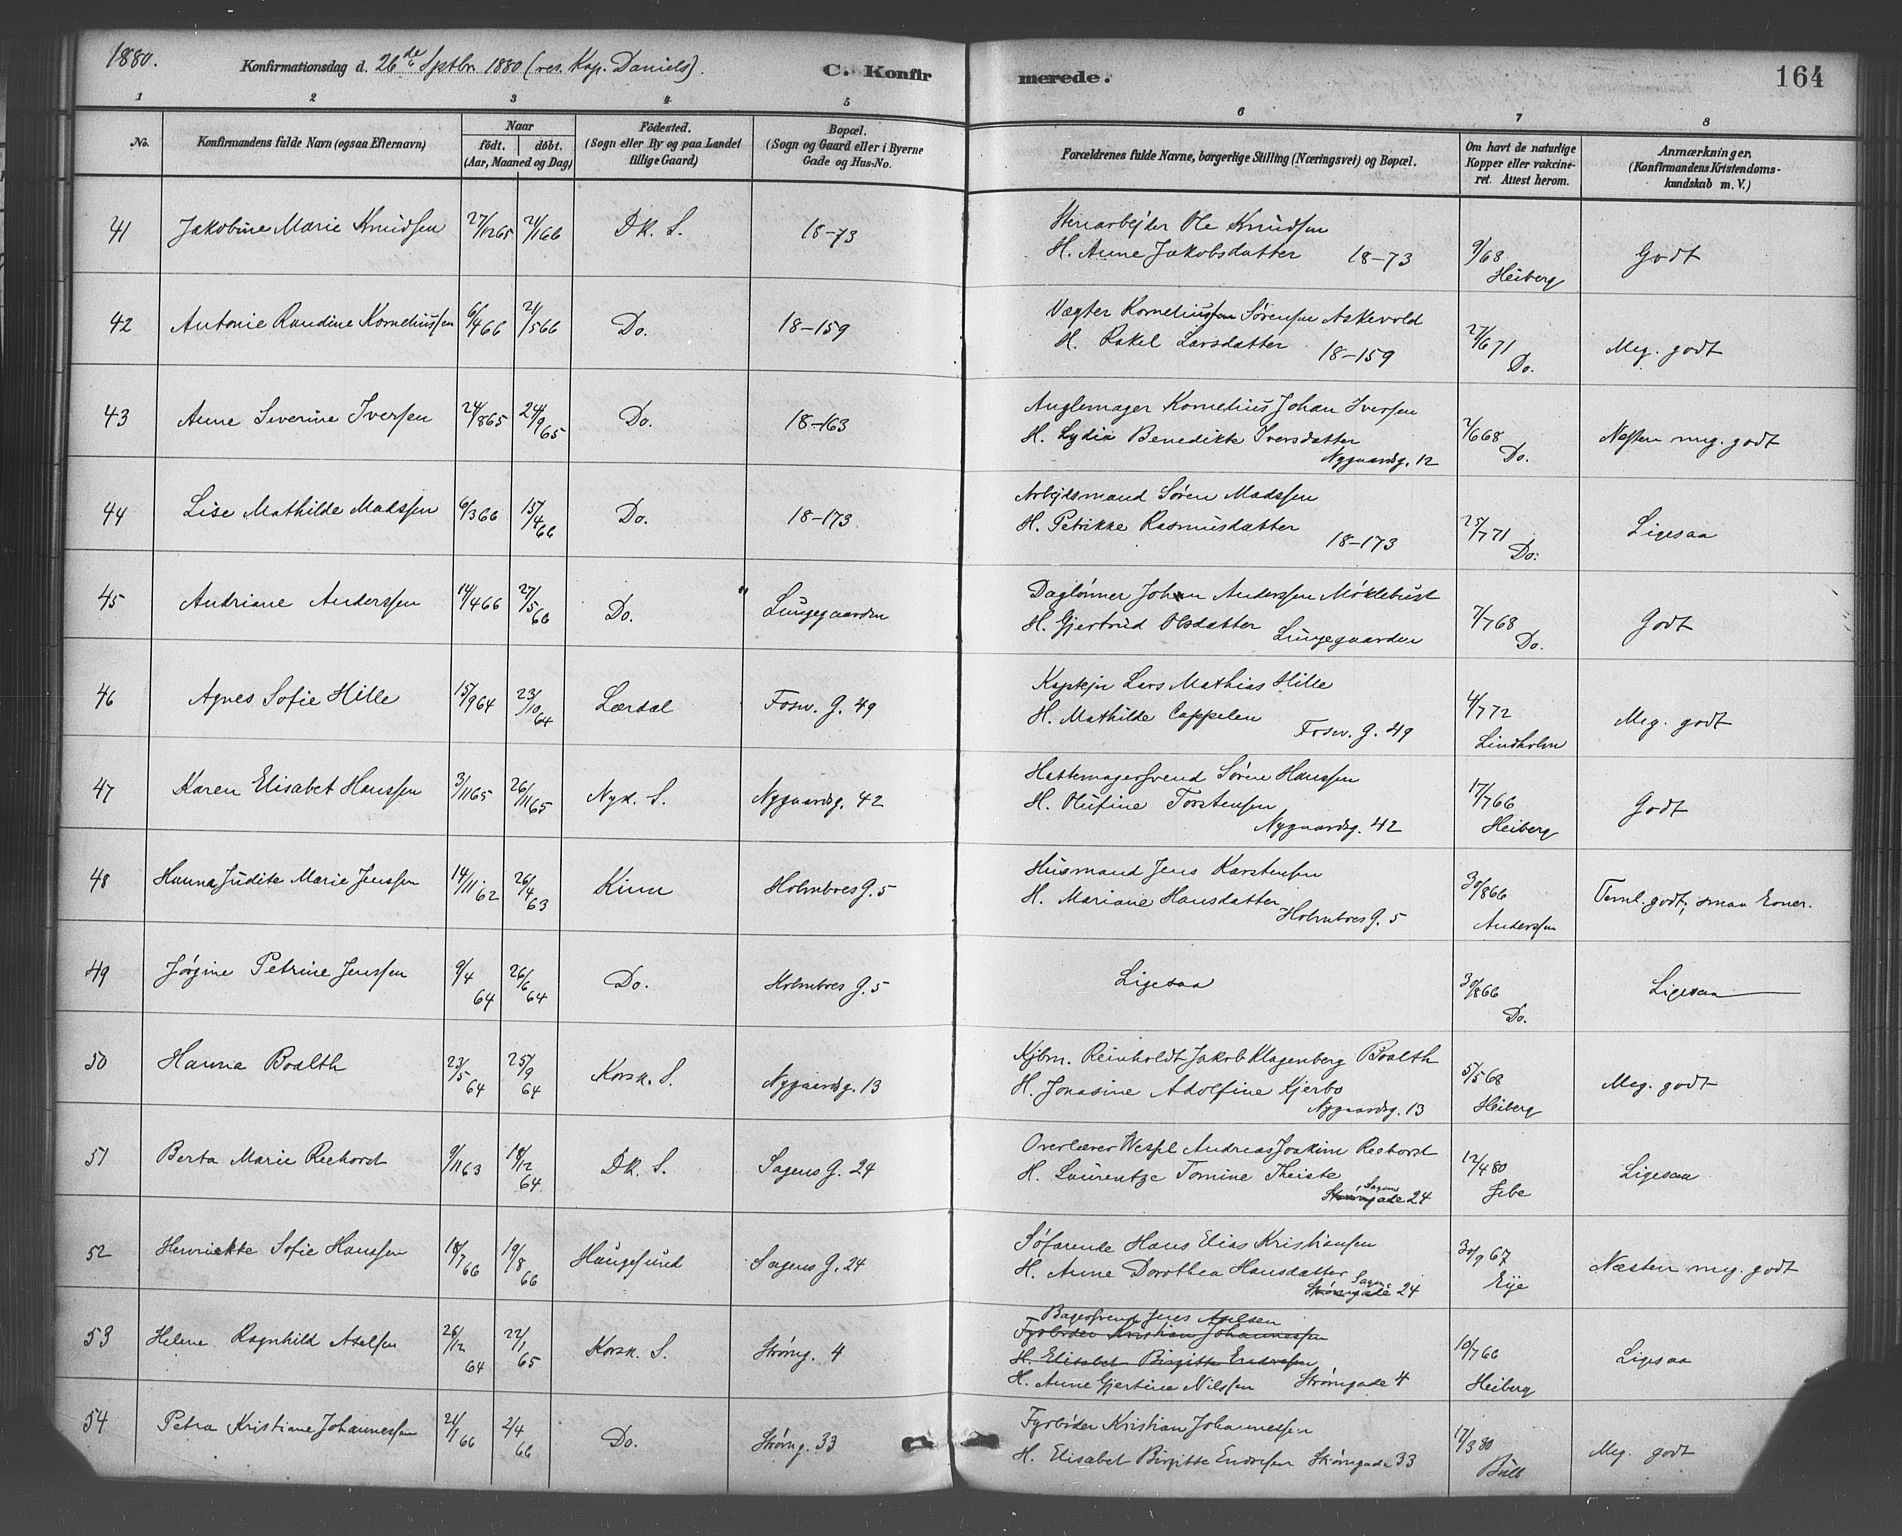 1880. Konfirmationsdag d. 26de Sptbr. 1880 (res. Kap. Daniels). C. Konfir merede. 164
1 2 3 4 5 6 7 8
No. Konfirmandens fulde Navn (ogsaa Efternavn) Naar født. døbt. (Aar, Maaned og Dag) Fødested. (Sogn eller By og paa Landet tillige Gaard) Bopæl. (Sogn og Gaard eller i Byerne Gade og Hus-No. Forældrenes fulde Navne, borgerlige Stilling (Næringsvei) og Bopæl. Om havt de naturlige Kopper eller vakcineret. Attest herom. Anmærkninger. (Konfirmandens Kristendomskundskab m. V.)
41 Jakobine Marie Knudsen 27/12 65 21/1 66 Dk. S. 18-73 Stenarbejder Ole Knudsen
H. Anne Jakobsdatter 18-73 9/68 Heiberg Godt
42 Antonie Randine Korneliussen 6/4 66 21/5 66 Do. 18-159 Vægter Korneliussen Sørensen Askevold
H. Rakel Larsdatter 18-159 27/6 71 Do. Meg. godt
43 Anne Severine Iversen 24/8 65 24/9 65 Do. 18-163 Kornelius Johan Iversen
H. Lydia Benedikte Iversdatter
Nygaardsg. 12 2/6 68 Do. Næsten meg. godt
44 Lise Mathilde Madssen 6/3 66 15/4 66 Do. 18-173 Arbejdsmand Søren Madssen
H. Petrikke Rasmusdatter
18-173 25/7 71 Do. Ligesaa
45 Andriane Anderssen 14/4 66 27/5 66 Do. " Lungegaarden Daglønner Johan Anderssen Møklebust
H. Gjertrud Olsdatter Lungegaarden 7/7 68 Do. Godt
46 Agnes Sofie Hille 15/9 64 23/10 64 Lærdal Fosw. G. 49 Kaptejn Lars Mathias Hille
H. Mathilde Cappelen
Fosw. G. 49 4/7 72 Lindholm Meg. godt
47 Karen Elisabet Hanssen 3/11 65 26/11 65 Nyk. S. Nygaardsg. 42 Hattemagersvend Søren Hanssen
H. Olufine Torstensen
Nygaardsg. 42 17/7 66 Heiberg Godt
48 Hanna Judite Marie Jenssen 14/11 62 26/4 63 Kinn Holmboes G. 5 Husmand Jens Karstensen
H. Mariane Hansdatter
Holmboes G. 5 30/8 66 Anderssen Teml. godt; smaa Evner.
49 Jørgine Petrine Jenssen 9/4 64 26/6 64 Do. Holmboes G. 5 Ligesaa 30/8 66 Do. Ligesaa
50 Hanna Boalth 23/5 64 25/9 64 Korsk. S. Nygaardsg. 13 Kjbm. Reinholdt Jakob Klagenberg Boalth
H. Jonasine Adolfine Kjerbo
Nygaardsg. 13 5/5 68 Heiberg Meg. godt
51 Berta Marie Reehorst 9/11 63 18/12 64 Dk. S. Sagens G. 24 Overlærer Andreas Joakim Reehorst
H. Laurentze Tomine Theiste
Sagens Strømgade 24 12/4 80 Jebe Ligesaa
52 Henriekte Sofie Hanssen 18/7 66 19/8 66 Haugesund Sagens G. 24 Søfarende Hans Elias Kristiansen
H. Anne Dorothea Hansdatter
Sagens Strømgade 24 30/9 67 Eije Næsten meg. godt
53 Helene Ragnhild Axelsen 26/12 64 22/1 65 Korsk. S. Strømg. 4 Bagersvend Jens Axelsen
Fyrbøder Kristian Johannessen
H. Elisabet Birgitte Endresen
H. Anne Gjertine Nilssen Strømgade 4 10/7 66 Heiberg Ligesaa
54 Petra Kristiane Johannessen 21/1 66 2/4 66 Do. Strømg. 33 Fyrbøder Kristian Johannessen
H. Elisabet Birgitte Endresen Strømgade 33 17/3 80 Bull Meg. godt